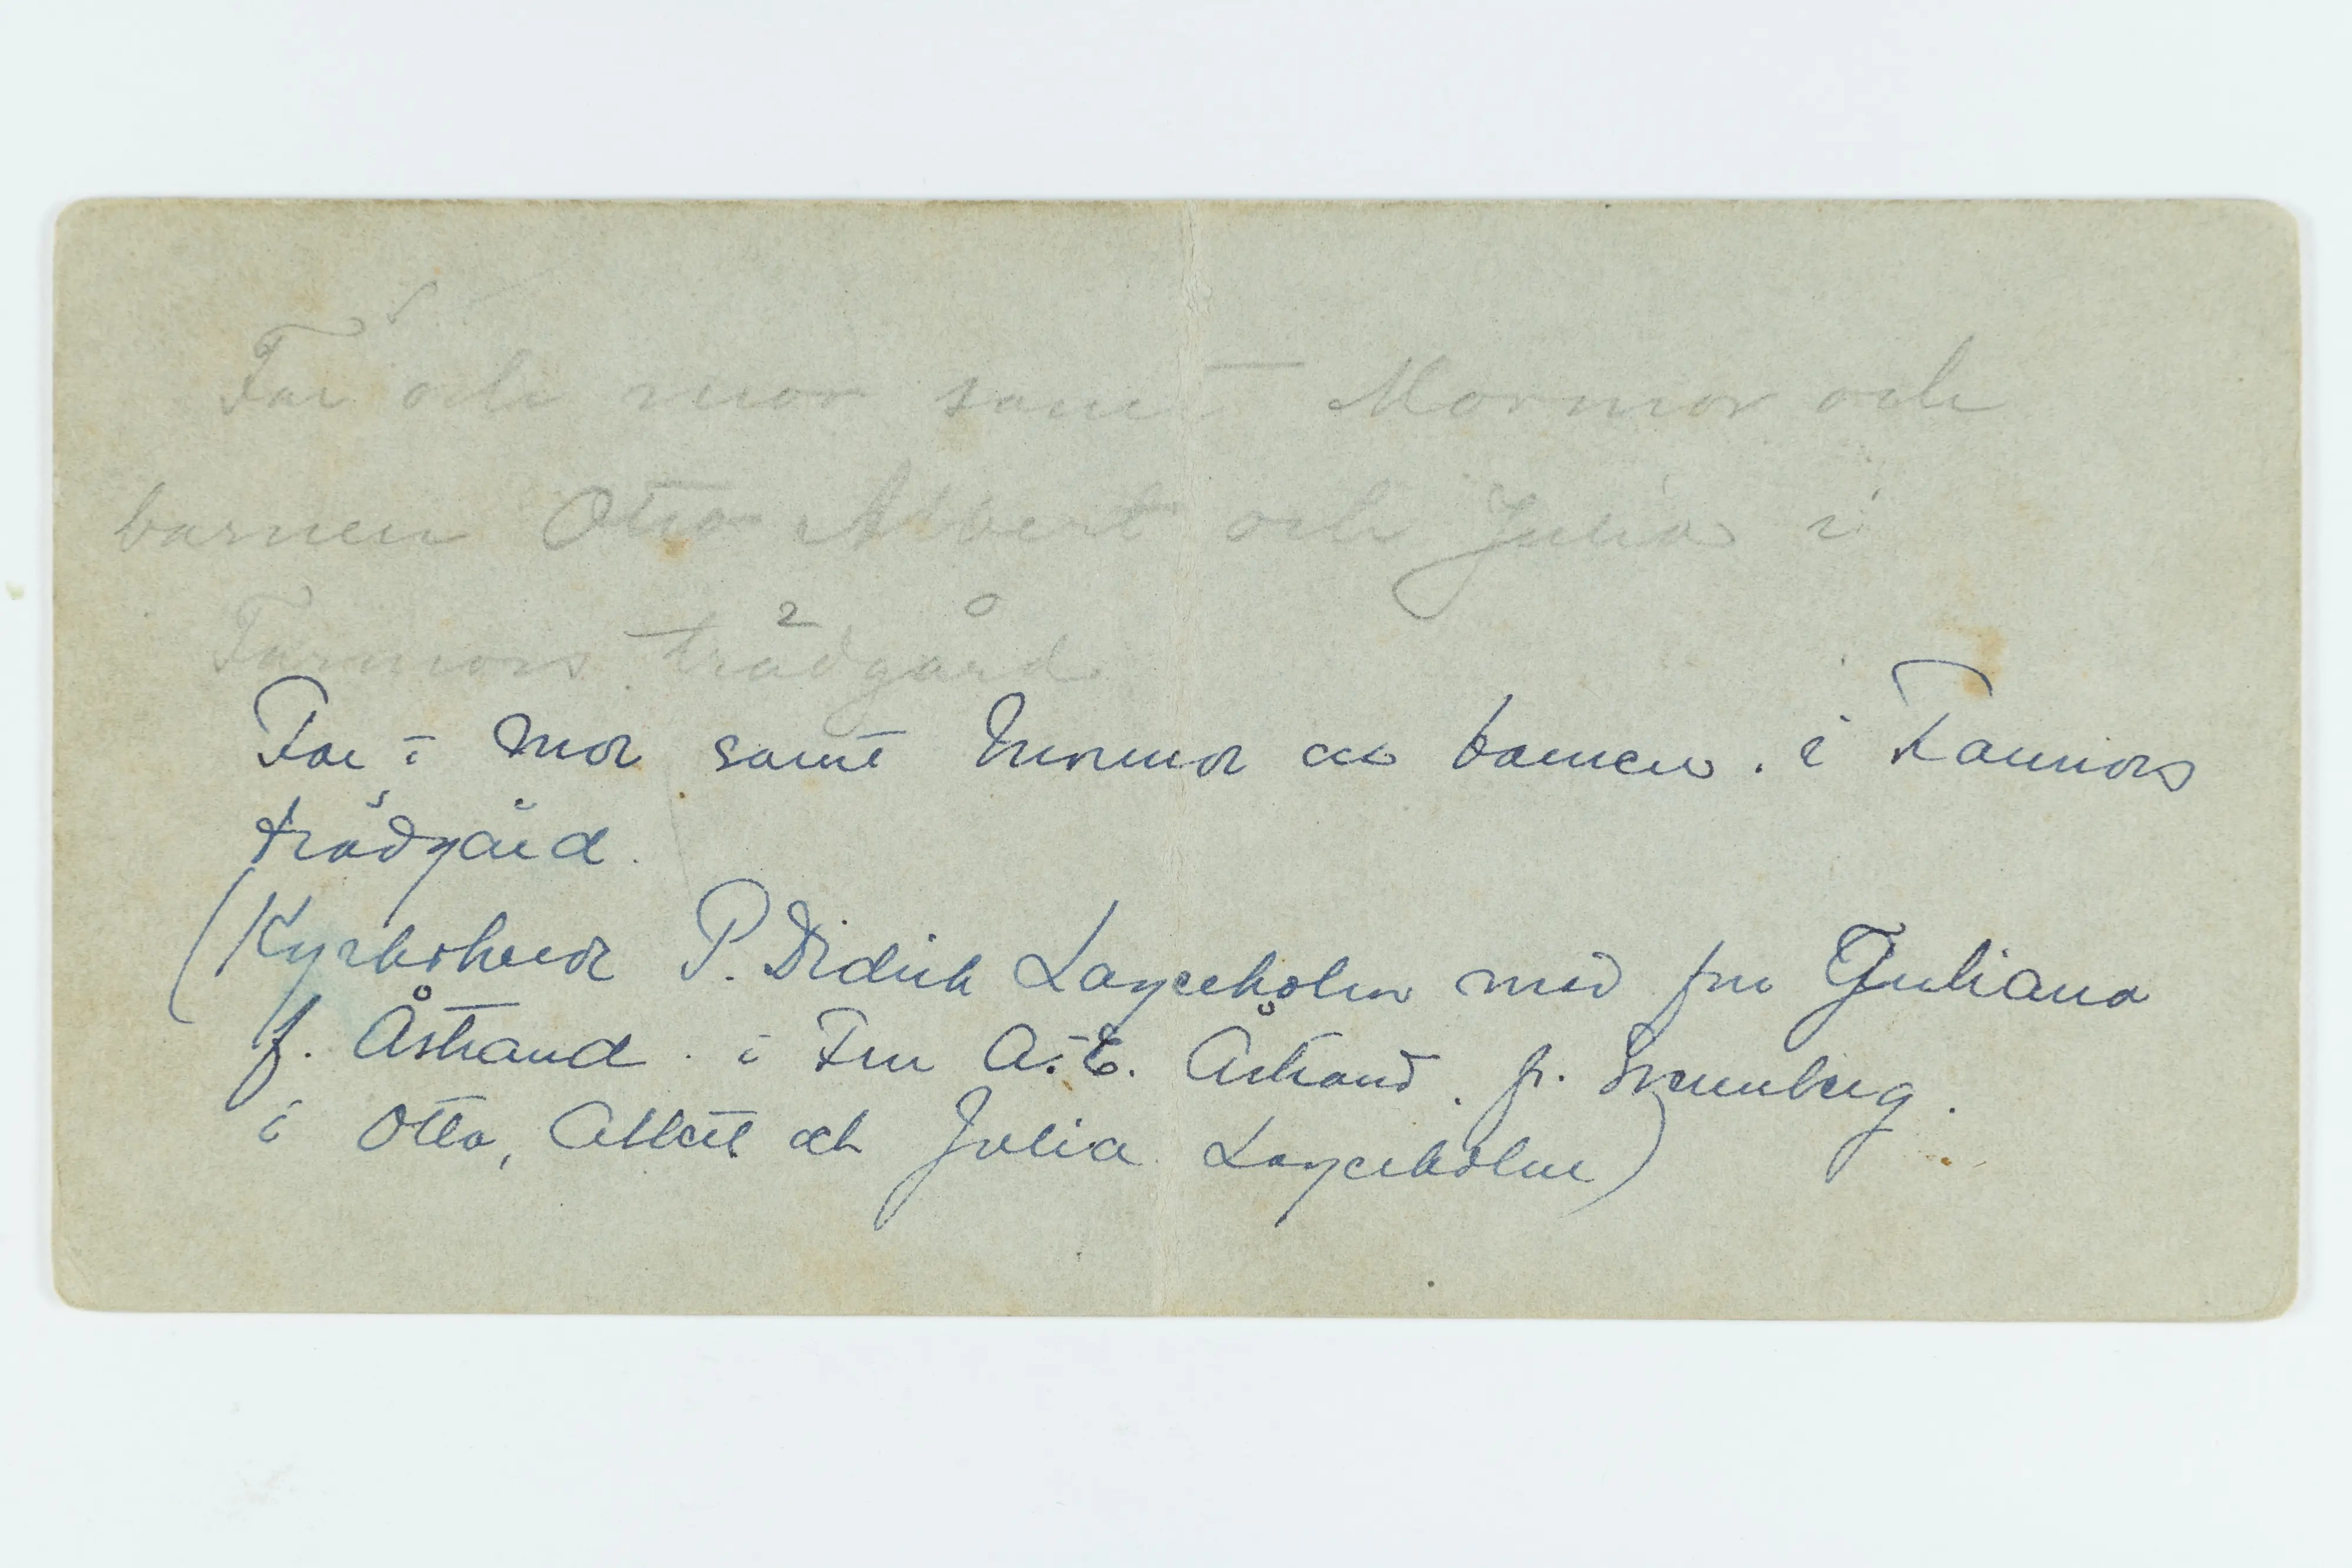 Far och mor samt Mormor och
barnen Otto Albert och Julia i
Farmors trädgård
Far i Mor samt Mormor och barnen. i Farmors
trädgård.
(Kyrkoherde P. Didrik Lagerholm med fru Juliana
f. Åstrand. i Fru A. E. Åstrand. f.
i Otto, Albert och Julia Lagerholm)